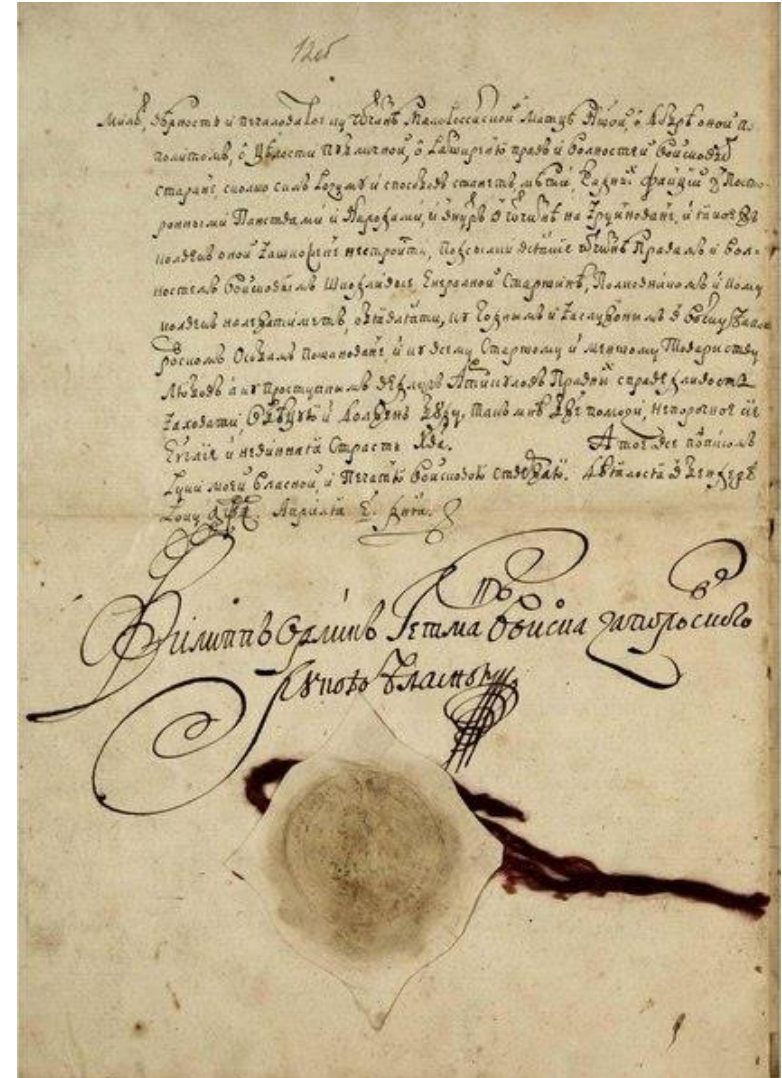 милѣ, вѣрность и печаловитое ку Отчизнѣ Малороссійской Матцѣ Нашой, о добрѣ оной по-
сполитомъ, о цѣлости публичной, о разширенїю правъ и волностей войсковыхъ
старанє, сколко силъ розуму и способовъ станетъ, мѣти, жадных факцій з посто-
ронными Панствами и Народами, и внутръ в отчизнѣ на зруйнованє, и якоє
колвекъ оной зашкоженє не строити, подсилки всякіє Отчизнѣ, Правамъ и вол-
ностемъ войсковымъ шкодливыє, Енералной Старшинѣ, Полковникомъ и кому
колвекъ належатиметъ, обявляти, ку годнымъ и заслужонымъ в войску Запо-
розскомъ Особамъ пошанованє, и ку всему старшому и меншому Товариству
любовъ а ку проступнымъ ведлугъ Артикуловъ Правных справедливость
заховати, обѣцую и долженъ буду, такъ мнѣ Бже помози, непорочноє сіє
Еѵгліє и невиннаѧ Страсть Хва. А тоє всє подписомъ
руки моєй власной, и Печатю войсковою ствержаю. Дѣялося в Бендерѣ
Року ҂аѱі. Априлія є҃. днѧ.
Филиппъ Орликъ Гетманъ войска запорозского
рукою власною